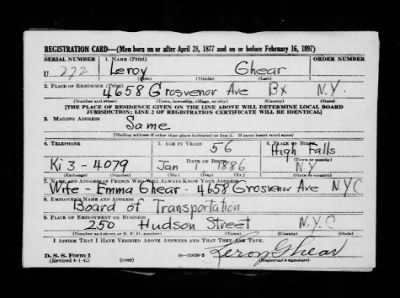 REGISTRATION CARD—(Men born on or after April 28, 1877 and on or before February 16, 1897)
SERIAL NUMBER 1. NAME (Print) ORDER NUMBER
U 222 Leroy Ghear
(First) (Middle) (Last)
2. PLACE OF RESIDENCE (Print)
4658 Grosvenor Ave Bx N.Y.
(Number and street) (Town, township, village, or city) (County) (State)
[THE PLACE OF RESIDENCE GIVEN ON THE LINE ABOVE WILL DETERMINE LOCAL BOARD
JURISDICTION; LINE 2 OF REGISTRATION CERTIFICATE WILL BE IDENTICAL]
3. MAILING ADDRESS
Same
[Mailing address if other than place indicated on line 2. If same insert word same]
4. TELEPHONE 5. AGE IN YEARS 6. PLACE OF BIRTH
56 High Falls
DATE OF BIRTH (Town or county)
Ki 3-4079 Jan 1 1886 NY
7. NAME AND ADDRESS OF PERSON WHO WILL ALWAYS KNOW YOUR ADDRESS
Wife - Emma Ghear - 4658 Grosvenor Ave NYC
8. EMPLOYER'S NAME AND ADDRESS
Board of Transportation
9. PLACE OF EMPLOYMENT OR BUSINESS
250 Hudson Street N.Y.C
(Number and street or R. F. D. number) (Town) (County) (State)
I AFFIRM THAT I HAVE VERIFIED ABOVE ANSWERS AND THAT THEY ARE TRUE.
D. S. S. Form 1 Leroy Ghear
(Revised 4-1-42) (over) (Registrant's signature)